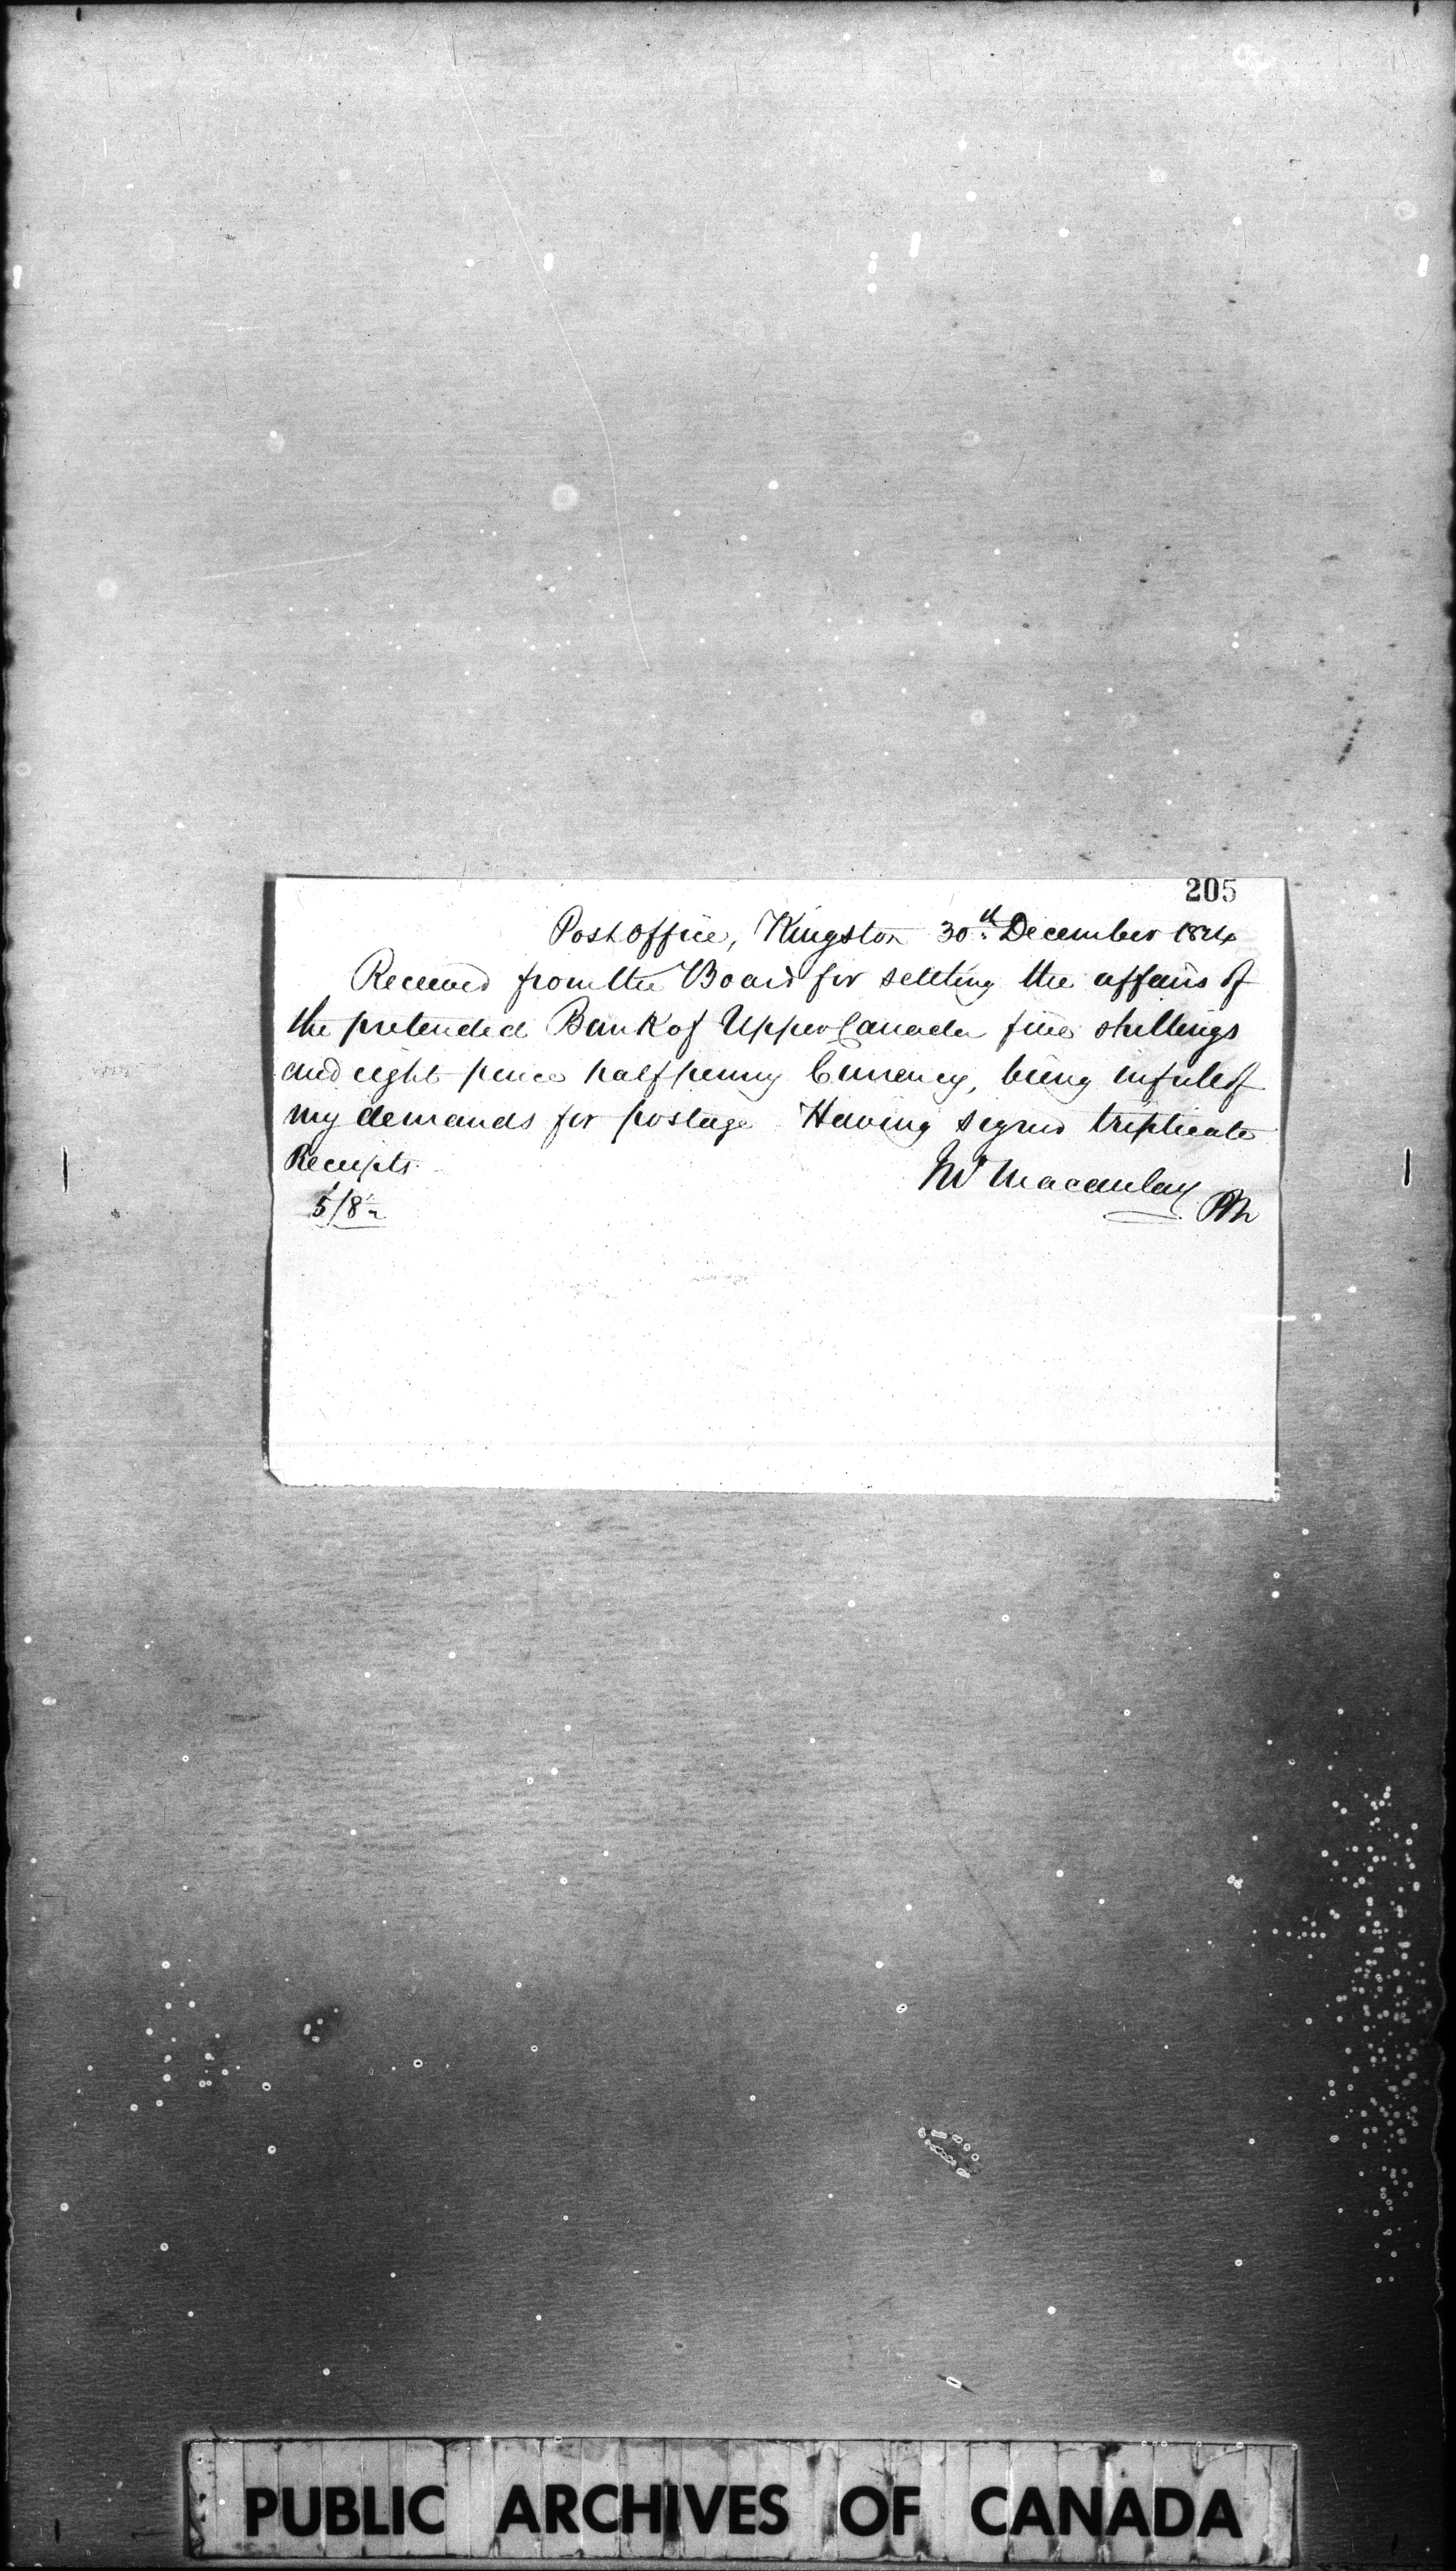 205
Post Office, Kingston 30th December 1824
Received from the Board for settling the affairs of
the pretended Bank of Upper Canada five shillings
and eight pence halfpenny Currency, being in full of
my demands for postage Having signed triplicate
Receipts.
Macaulay
PM
5/8½
PUBLIC ARCHIVES OF CANADA